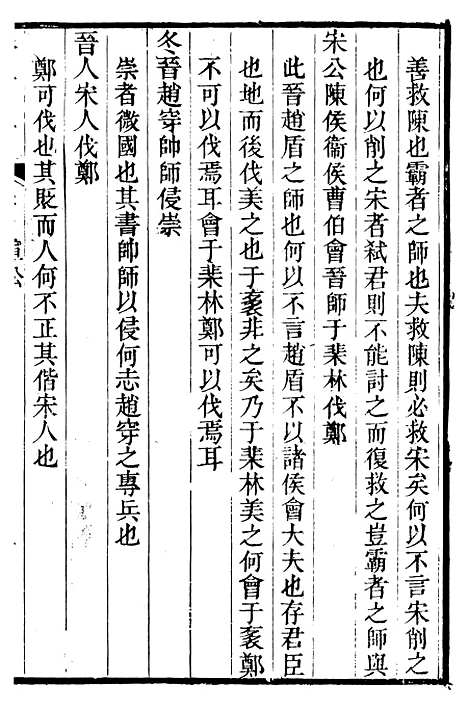 善救陳也霸者之師也夫救陳則必救宋矣何以不言宋削之
也何以削之宋者弑君則不能討之而復救之豈霸者之師與
宋公陳侯衞侯曹伯會晉師于棐林伐鄭
此晉趙盾之師也何以不言趙盾不以諸侯會大夫也存君臣
也地而後伐美之也于袲非之矣乃于棐林美之何會于袲鄭
不可以伐焉耳會于棐林鄭可以伐焉耳
冬晉趙穿帥師侵崇
崇者微國也其書帥師以侵何志趙穿之專兵也
晉人宋人伐鄭
鄭可伐也其貶而人何不正其偕宋人也
宣公